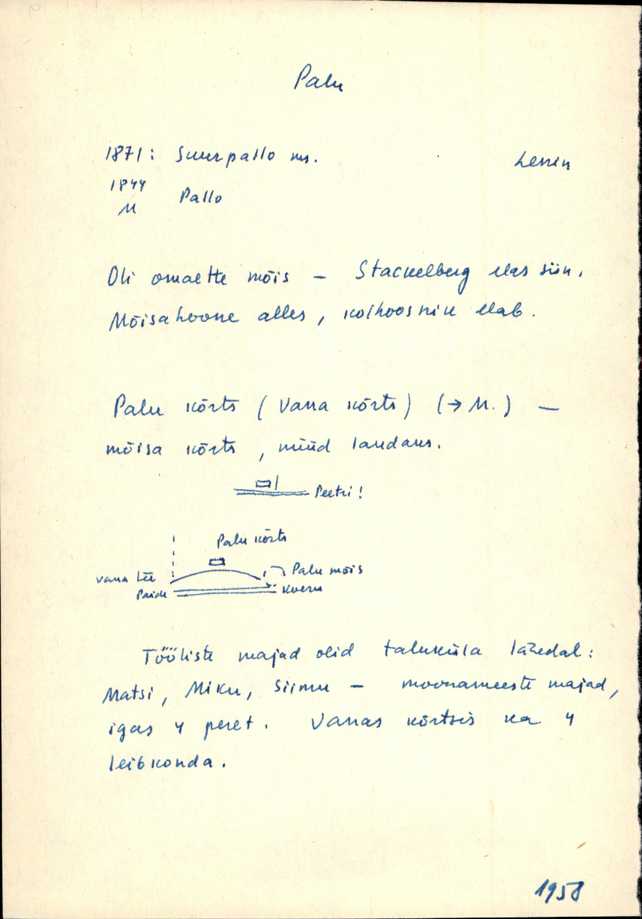 Palu
1871: Suurpallo ms.
1844
M
Pallo
Oli omaette mõis – Stackelberg elas siin.
Mõisahoone alles, kolhoosnik elab.
Palu kõrts (Vana kõrts) (→ M.) –
mõisa kõrts, nüüd laudaks.
Peetri!
Palu kõrts
vana tee
Palu mõis
Paide
Koeru
Tööliste majad olid taluküla lähedal:
Matsi, Miku, Siimu – moonameeste majad,
igas 4 peret. Vanas kõrtsis ka 4
leibkonda.
1958